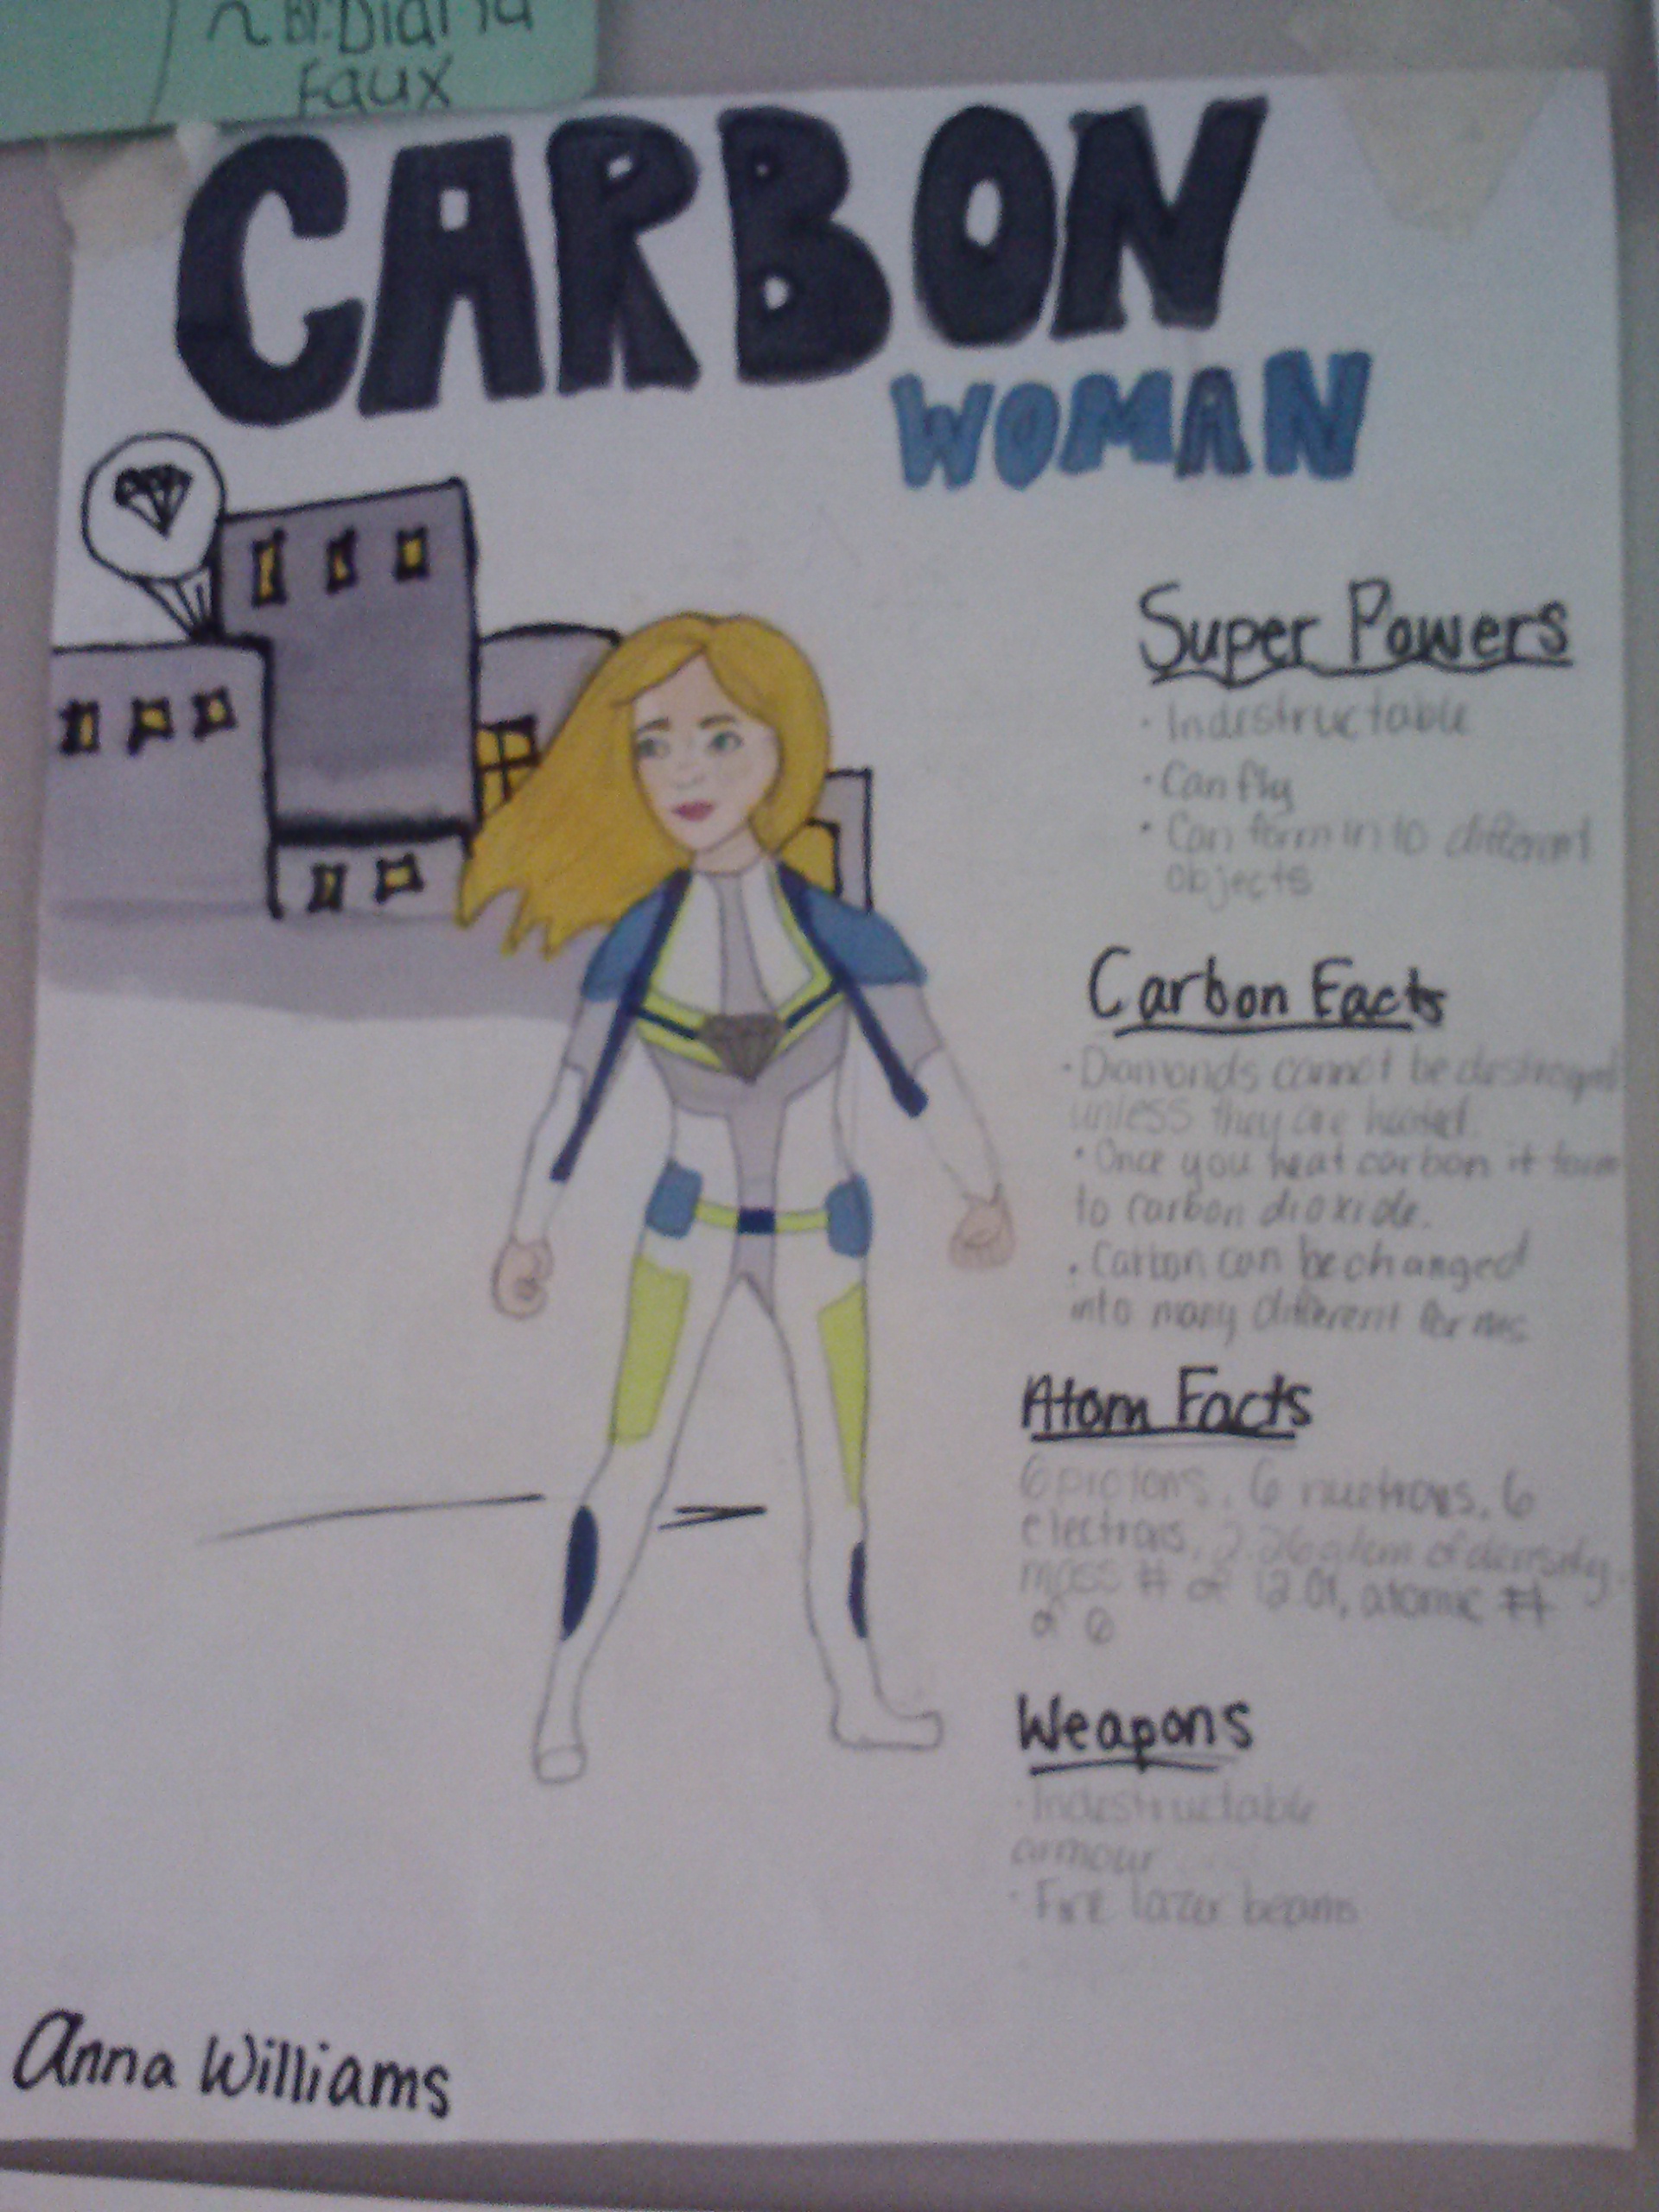 ~ By: Diana
Faux
CARBON
WOMAN
Super Powers
· Indestructable
· Can fly
· Can form in to different
objects
Carbon Facts
· Diamonds cannot be destroyed
unless they are heated.
· Once you heat carbon it
to carbon dioxide.
· Carbon can be changed
into many different forms
Atom Facts
6 protons, 6 nuetrons, 6
electrons, 2.26 g/cm of density,
mass # of 12.01, atomic #
of 6
Weapons
· Indestructable
armour
· Fire lazer beams
Anna Williams